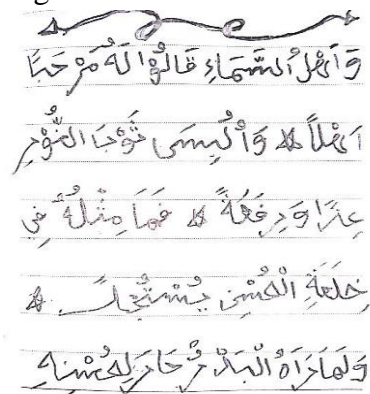 وَاَهْلُ السَّمَاءِ قَالُوْا لَهُ مَرْحَبًا
اَهْلاً * وَاُلْبِسَى ثَوْبَا النُّوْرِ
عِزًا وَرِفْعَةً * فَمَا مِثْلُهُ فِي
خِلْعَةِ الْحُسْنِ يُسْتُجْلاً *
وَلَمَا رَاَهُ الْبَدْرُ حَارَ لِحُسْنِهِ